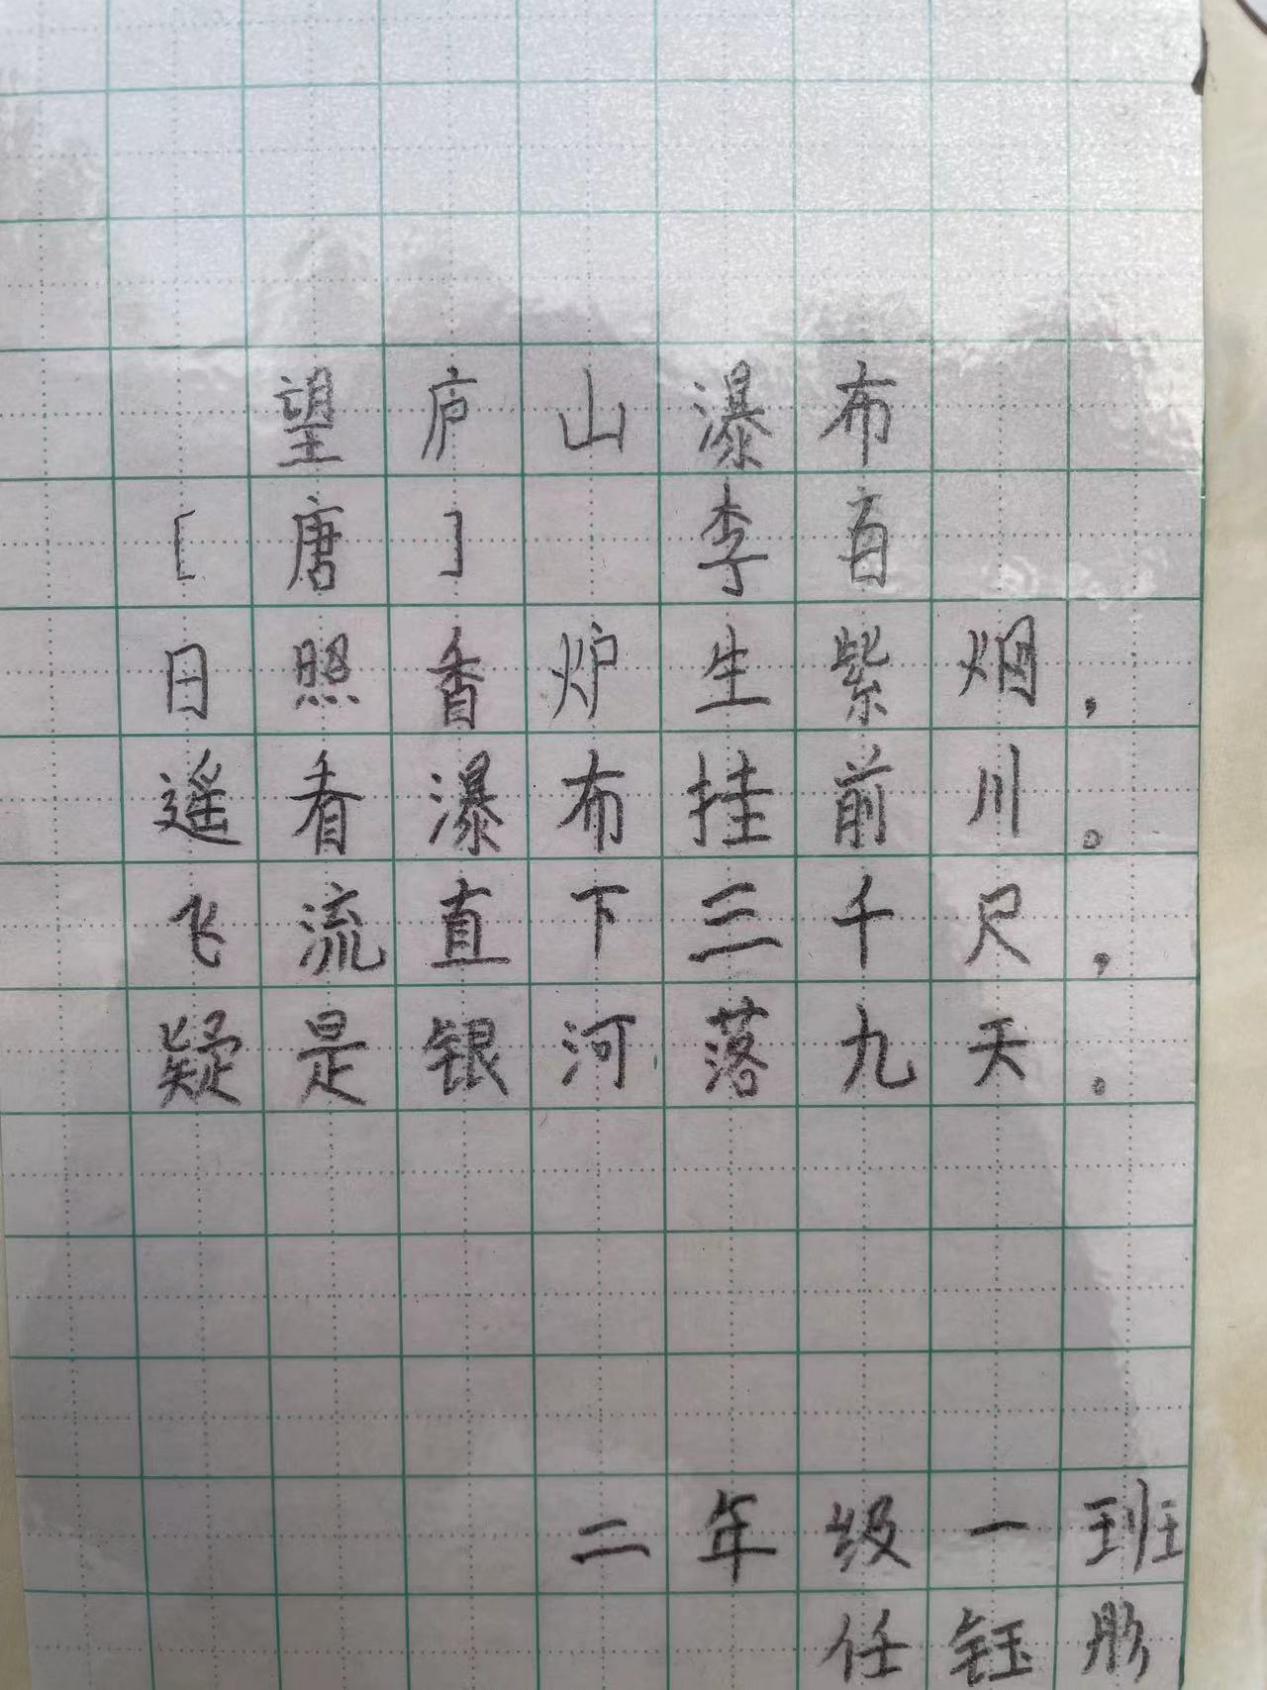 望庐山瀑布
[唐] 李百
日照香炉生紫烟，
遥看瀑布挂前川。
飞流直下三千尺，
疑是银河落九天。
二年级一班
任钰彤